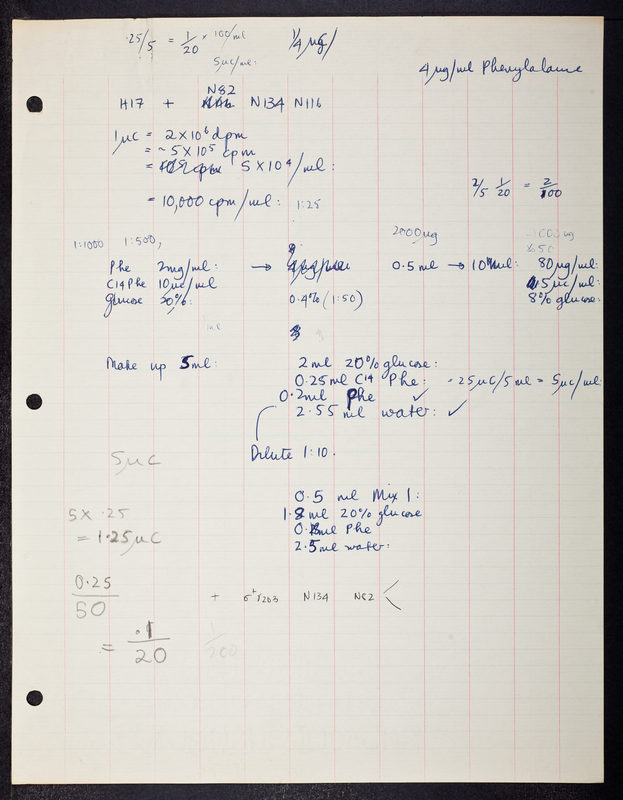 .25/5 = 1/20 × 100/ml ¼ µg/
5µc/ml:
4 µg/ml Phenylalanine
N82
H17 + N134 N116
1µc = 2×10⁶ dpm
= ~ 5×10⁵ cpm
= 5×10⁴/ml:
2/5 1/20 = 2/100
= 10,000 cpm/ml: 1:25
1:1000 1:500, 2000µg
Phe 2mg/ml: → 0.5ml → 10 ml: 80µg/ml:
C14 Phe 10µc/ml .5µc/ml:
Glucose 20%: 0.4% (1:50) 8% glucose:
Make up 5ml: 2ml 20% glucose:
0.25ml C14 Phe: = 25µC/5ml = 5µc/ml:
0.2ml Phe ✓
2.55 ml water: ✓
Dilute 1:10.
5µC
0.5 ml Mix 1:
5 × .25 1.8ml 20% glucose
= 1.25µC ml Phe
2.5ml water:
0.25/50
+ N134 N82
= .1/20 1/200